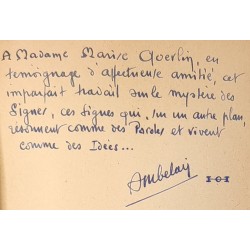 A Madame Marise Querlin, en
témoignage d'affectueuse amitié, cet
imparfait travail sur le mystère des
Signes, ces Signes qui, sur un autre plan,
résonnent comme des Paroles et vivent
comme des Idées...
Ambelain